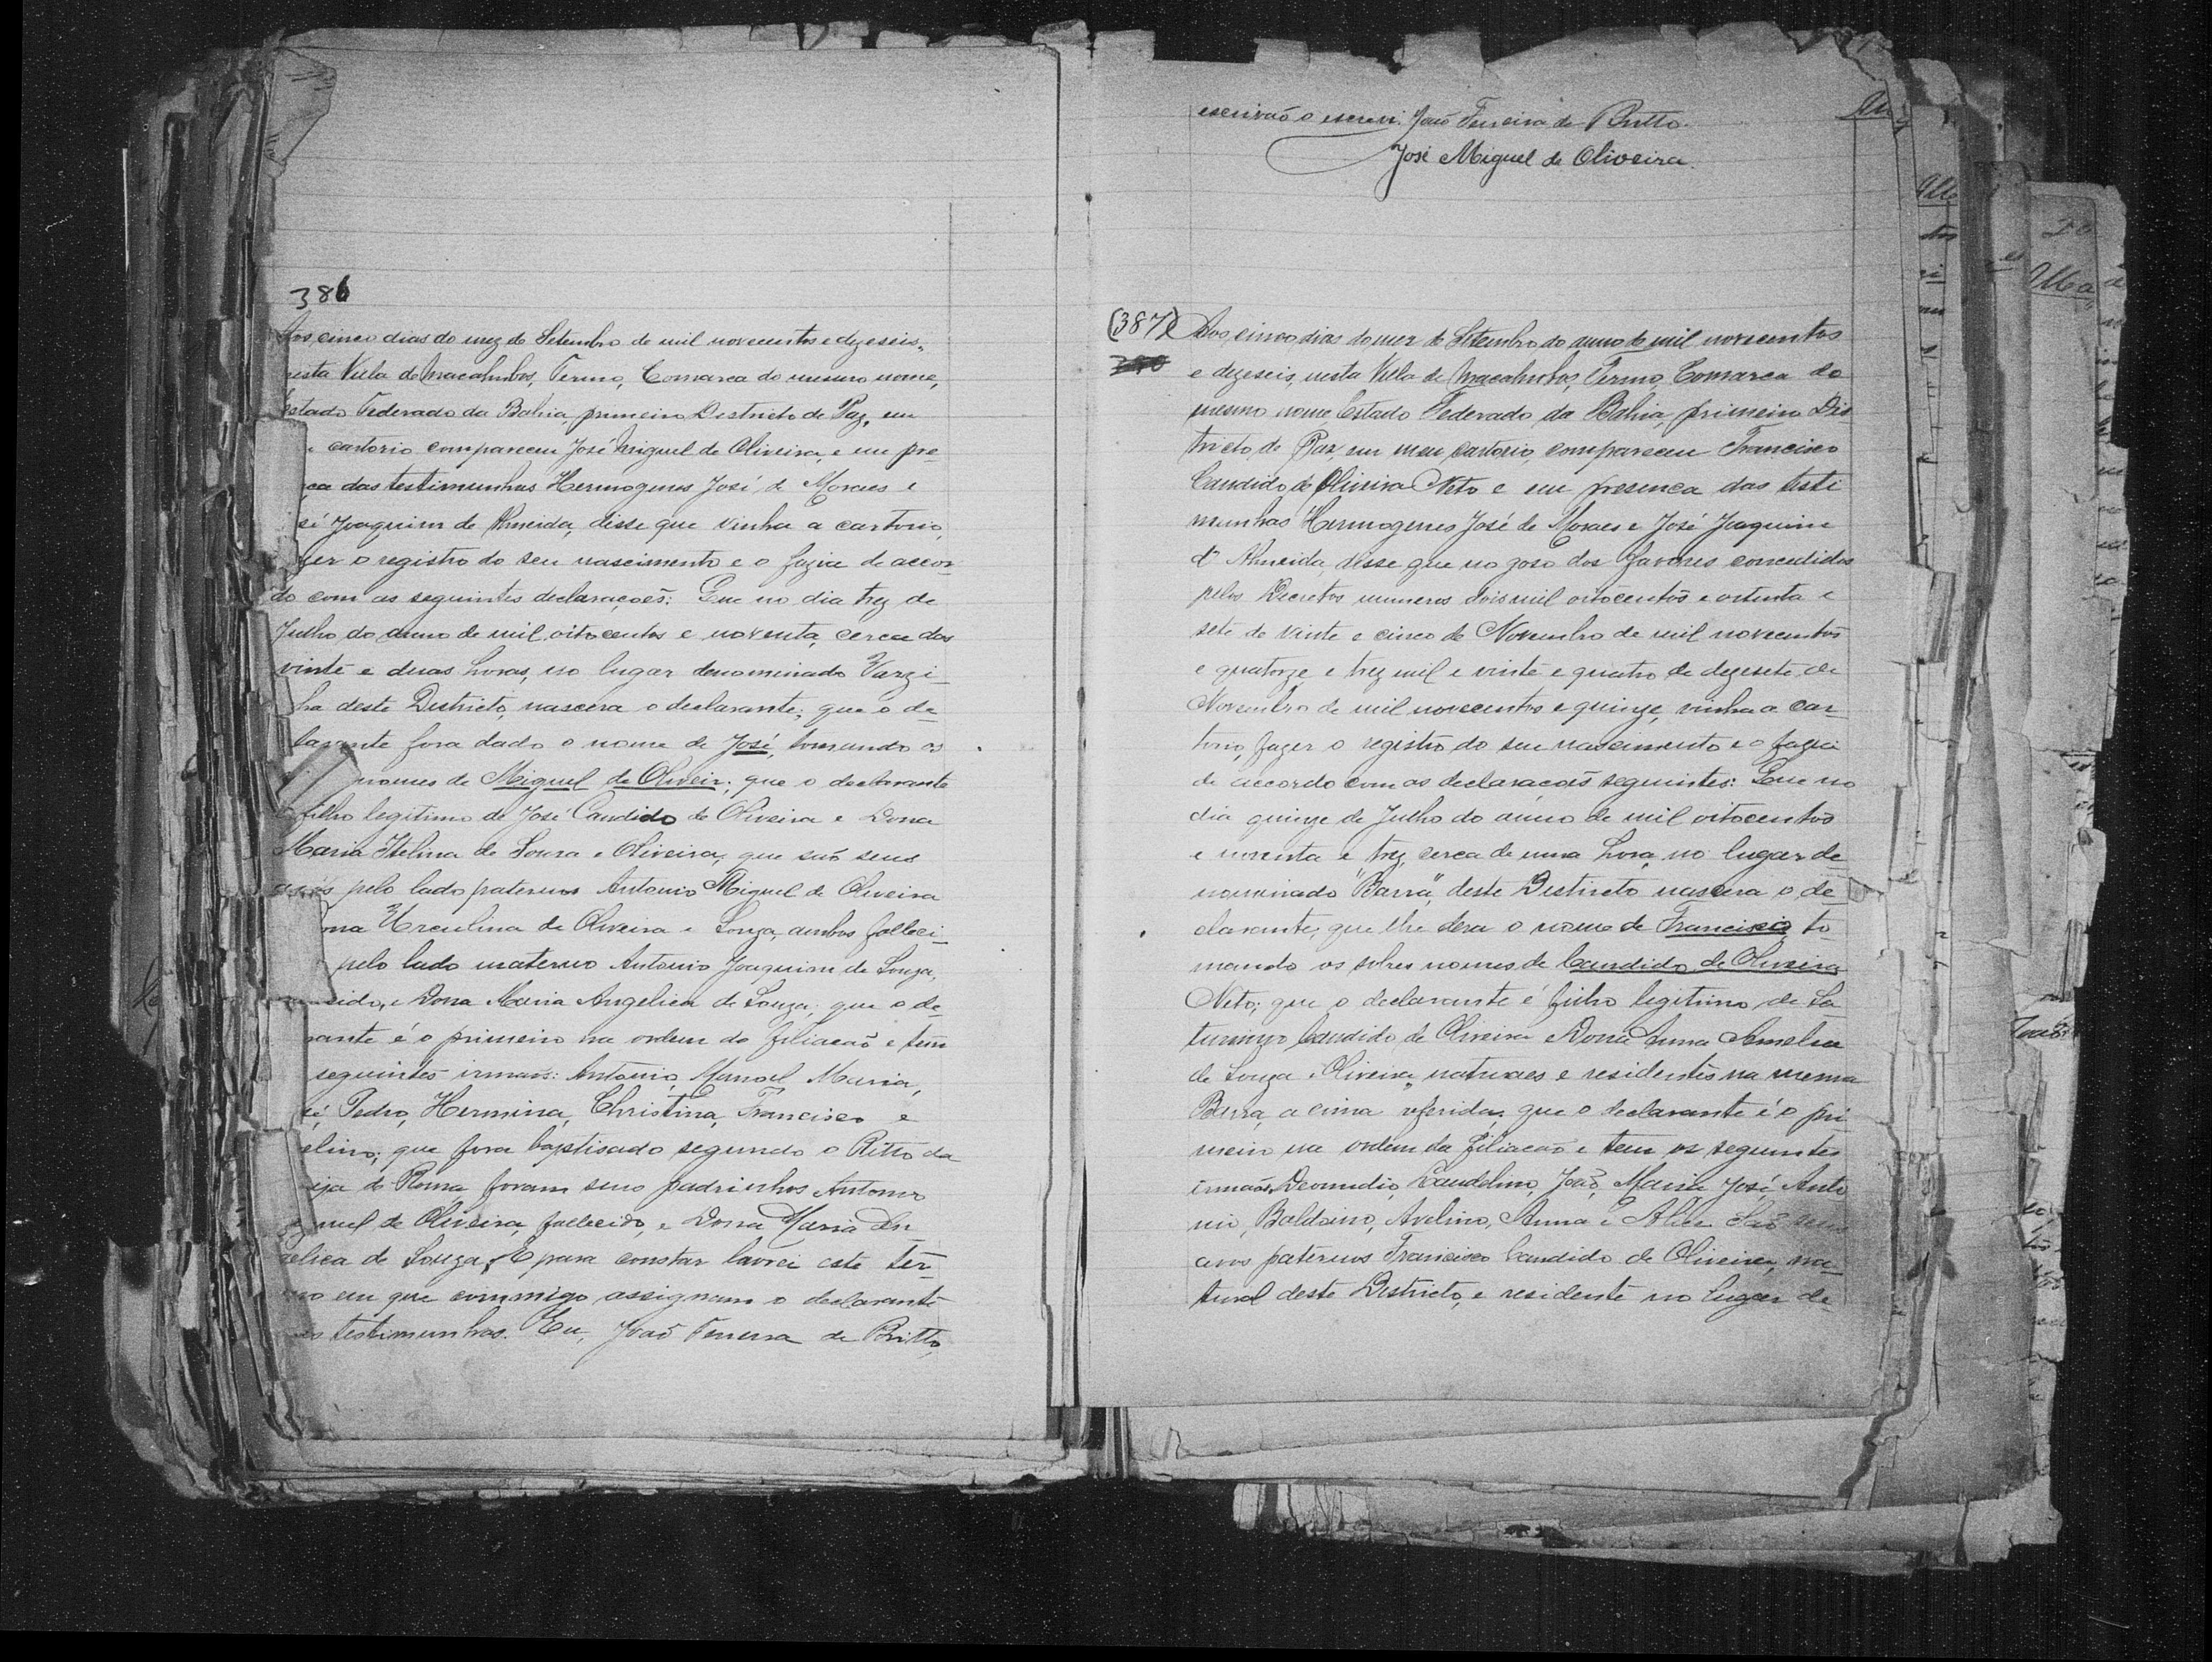 386
Aos cinco dias do mez de Setembro de mil novecentos e dezeseis,
nesta Villa de Macahubas, Termo, Comarca do mesmo nome,
Estado Federado da Bahia, primeiro Districto de Paz, em
cartorio compareceu José Miguel de Oliveira, e em pre-
ça das testimunhas Hermogenes José de Moraes e
sé Joaquim de Almeida, disse que vinha a cartorio,
zer o registro do seu nascimento e o fazia de accor-
do com as seguintes declarações: Que no dia trez de
Julho do anno de mil oitocentos e noventa, cerca das
vinte e duas horas, no lugar denominado Varzi-
ha deste Districto, nascera o declarante; que o de-
larante fora dado o nome de José, tomando os
nomes de Miguel de Oliveir; que o declarante
é filho legitimo de José Candido de Oliveira e Dona
Maria Idelina de Souza e Oliveira, que saõ seus
avós pelo lado paterno Antonio Miguel de Oliveira
ona Herculina de Oliveira e Souza, ambos falleci-
pelo lado materno Antonio Joaquim de Souza,
cido, e Dona Maria Angelica de Souza; que o de-
rante é o primeiro na ordem do filiacaõ e tem
seguintes irmaõs: Antonio, Manoel, Maria,
sé, Pedro, Hermina, Christina, Francisco e
elino; que fora baptisado segundo o Ritto da
eja de Roma, foram seus padrinhos Antonio
guel de Oliveira, fallecido, e Dona Maria An-
gelica de Souza. E para constar lavrei este ter-
mo em que commigo assignam o declarante
as testimunhas. Eu, Joaõ Ferreira de Britto,
escrivaõ o escrevi. Joaõ Ferreira de Britto.
José Miguel de Oliveira.
(387) Aos cinco dias do mez de Setembro do anno de mil novecentos
e dezeseis, nesta Villa de Macahubas, Termo, Comarca do
mesmo nome Estado Federado da Bahia, primeiro Dis-
tricto de Paz, em meu cartorio, compareceu Francisco
Candido de Oliveira Neto e em presença das testi
munhas Hermogenes José de Moraes e José Joaquim
d'Almeida, disse que no goso dos favores concedidos
pelos Decretos numeros dois mil oitocentos e oitenta e
sete de vinte e cinco de Novembro de mil novecentos
e quatorze e trez mil e vinte e quatro de dezesete de
Novembro de mil novecentos e quinze, vinha a car-
torio, fazer o registro do seu nascimento e o fazia
de accordo com as declarações seguintes: Que no
dia quinze de Julho do anno de mil oitocentos
e noventa e trez, cerca de uma hora, no lugar de
nominado "Barra", deste Districto nascera o de
clarante, que lhe dera o nome de Francisco, to-
mando os sobres nomes de Candido de Oliveira
Neto; que o declarante é filho legitimo de Sa
turnino Candido de Oliveira e Dona Anna Amelia
de Souza e Oliveira, naturaes e residentes na mesma
Barra, acima referida; que o declarante é o pri
meiro na ordem da filiacaõ e tem os seguintes
irmaõs, Deomidio, Laudelino, Joaõ, Maria José, Anto
nio, Baldoino, Avelino, Anna e Alice. Saõ seus
avos paternos Francisco Candido de Oliveira, na-
tural deste Districto, e residente no lugar de